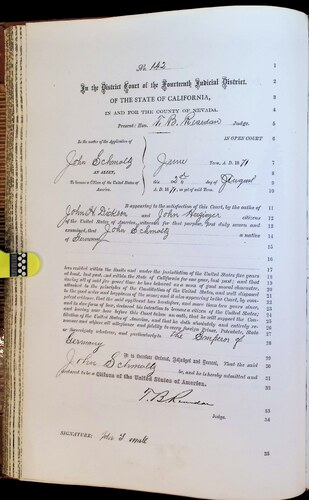 No 142
In the District Court of the Fourteenth Judicial District.
OF THE STATE OF CALIFORNIA,
IN AND FOR THE COUNTY OF NEVADA.
Present: Hon. T. B. Reardan Judge.
In the matter of the Application of
IN OPEN COURT
John Schmoltz
AN ALIEN,
To become a Citizen of the United States of America.
June Term, A. D. 1871
this 2nd day of August
A. D. 1871, as yet of said Term.
It appearing to the satisfaction of this Court, by the oaths of
John H Dickson and John citizens
of the United States of America, witnesses for that purpose, first duly sworn and
examined, that John Schmoltz a native
of Germany
has resided within the limits and under the jurisdiction of the United States five years
at least, last past, and within the State of California for one year, last past; and that
during all of said five years' time he has behaved as a man of good moral character,
attached to the principles of the Constitution of the United States, and well disposed
to the good order and happiness of the same; and it also appearing to the Court, by competent
evidence, that the said applicant has heretofore, and more than two years since,
and in due form of law, declared his intention to become a citizen of the United States;
and having now here before this Court taken an oath, that he will support the Constitution
of the United States of America, and that he doth absolutely and entirely renounce
and abjure all allegiance and fidelity to every foreign Prince, Potentate, State
or Sovereignty whatever, and particularly to The Emperor of
Germany
It is therefore Ordered, Adjudged and Decreed, That the said
John Schmoltz be, and he is hereby admitted and
declared to be a Citizen of the United States of America.
T. B. Reardan
Judge.
SIGNATURE: